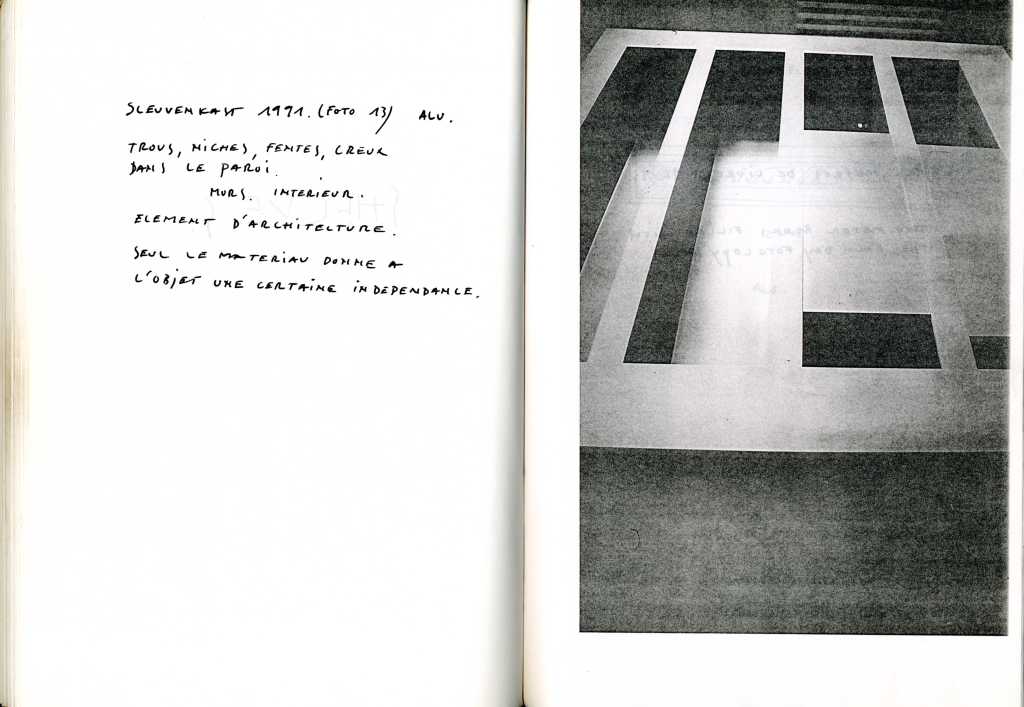 SLEUVENKAST 1991. (FOTO 13) ALU.
TROUS, NICHES, FENTES, CREUX
DANS LE PAROI.
MURS. INTERIEUR.
ELEMENT D'ARCHITECTURE.
SEUL LE MATERIAU DONNE A
L'OBJET UNE CERTAINE INDEPENDANCE.